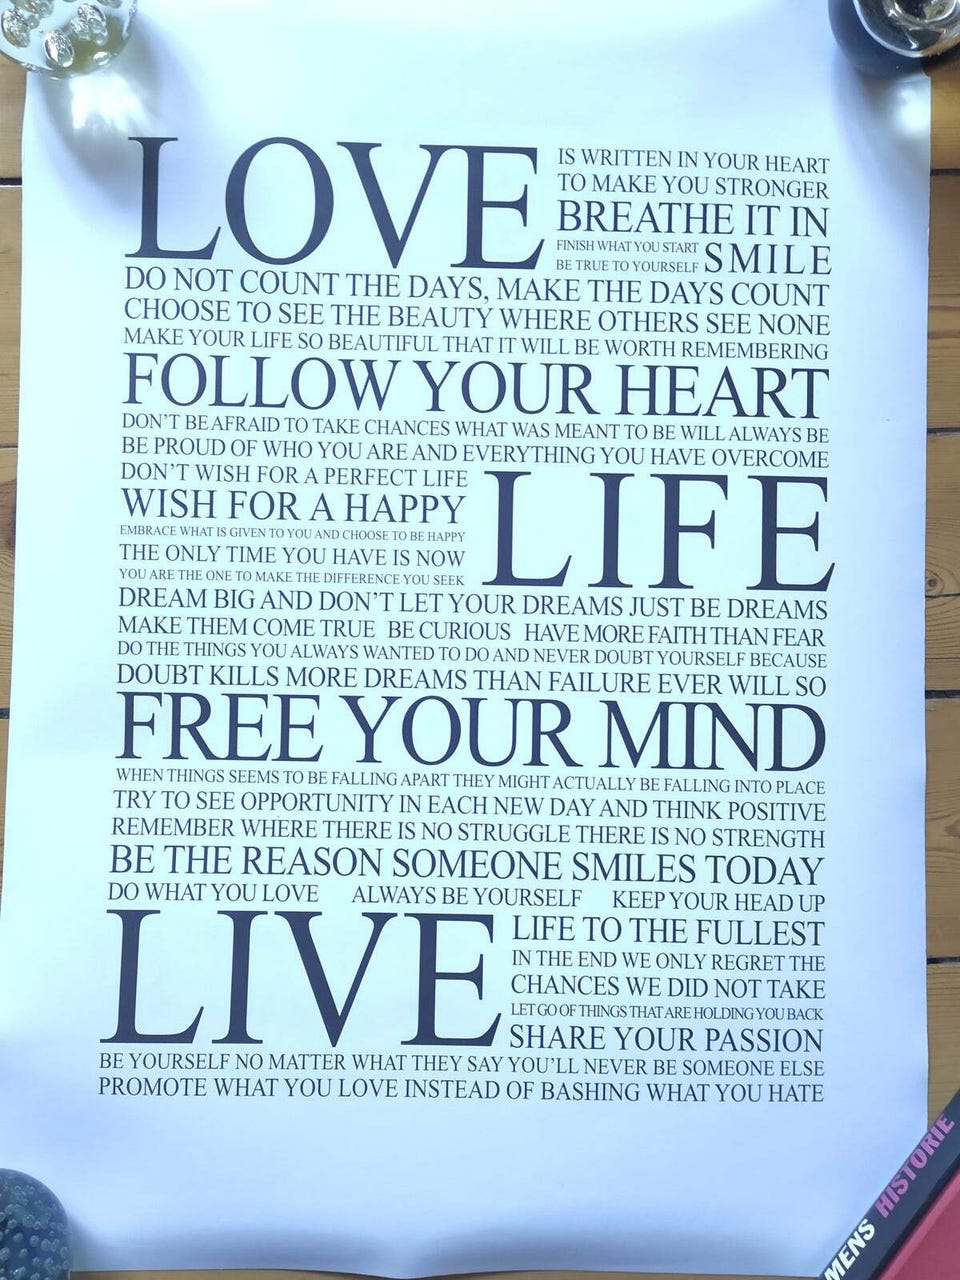 LOVE
IS WRITTEN IN YOUR HEART
TO MAKE YOU STRONGER
BREATHE IT IN
FINISH WHAT YOU START
BE TRUE TO YOURSELF
SMILE
DO NOT COUNT THE DAYS, MAKE THE DAYS COUNT
CHOOSE TO SEE THE BEAUTY WHERE OTHERS SEE NONE
MAKE YOUR LIFE SO BEAUTIFUL THAT IT WILL BE WORTH REMEMBERING
FOLLOW YOUR HEART
DON'T BE AFRAID TO TAKE CHANCES WHAT WAS MEANT TO BE WILL ALWAYS BE
BE PROUD OF WHO YOU ARE AND EVERYTHING YOU HAVE OVERCOME
DON'T WISH FOR A PERFECT LIFE
WISH FOR A HAPPY
EMBRACE WHAT IS GIVEN TO YOU AND CHOOSE TO BE HAPPY
THE ONLY TIME YOU HAVE IS NOW
YOU ARE THE ONE TO MAKE THE DIFFERENCE YOU SEEK
LIFE
DREAM BIG AND DON'T LET YOUR DREAMS JUST BE DREAMS
MAKE THEM COME TRUE BE CURIOUS HAVE MORE FAITH THAN FEAR
DO THE THINGS YOU ALWAYS WANTED TO DO AND NEVER DOUBT YOURSELF BECAUSE
DOUBT KILLS MORE DREAMS THAN FAILURE EVER WILL SO
FREE YOUR MIND
WHEN THINGS SEEMS TO BE FALLING APART THEY MIGHT ACTUALLY BE FALLING INTO PLACE
TRY TO SEE OPPORTUNITY IN EACH NEW DAY AND THINK POSITIVE
REMEMBER WHERE THERE IS NO STRUGGLE THERE IS NO STRENGTH
BE THE REASON SOMEONE SMILES TODAY
DO WHAT YOU LOVE ALWAYS BE YOURSELF KEEP YOUR HEAD UP
LIVE
LIFE TO THE FULLEST
IN THE END WE ONLY REGRET THE
CHANCES WE DID NOT TAKE
LET GO OF THINGS THAT ARE HOLDING YOU BACK
SHARE YOUR PASSION
BE YOURSELF NO MATTER WHAT THEY SAY YOU'LL NEVER BE SOMEONE ELSE
PROMOTE WHAT YOU LOVE INSTEAD OF BASHING WHAT YOU HATE
MENS HISTORIE